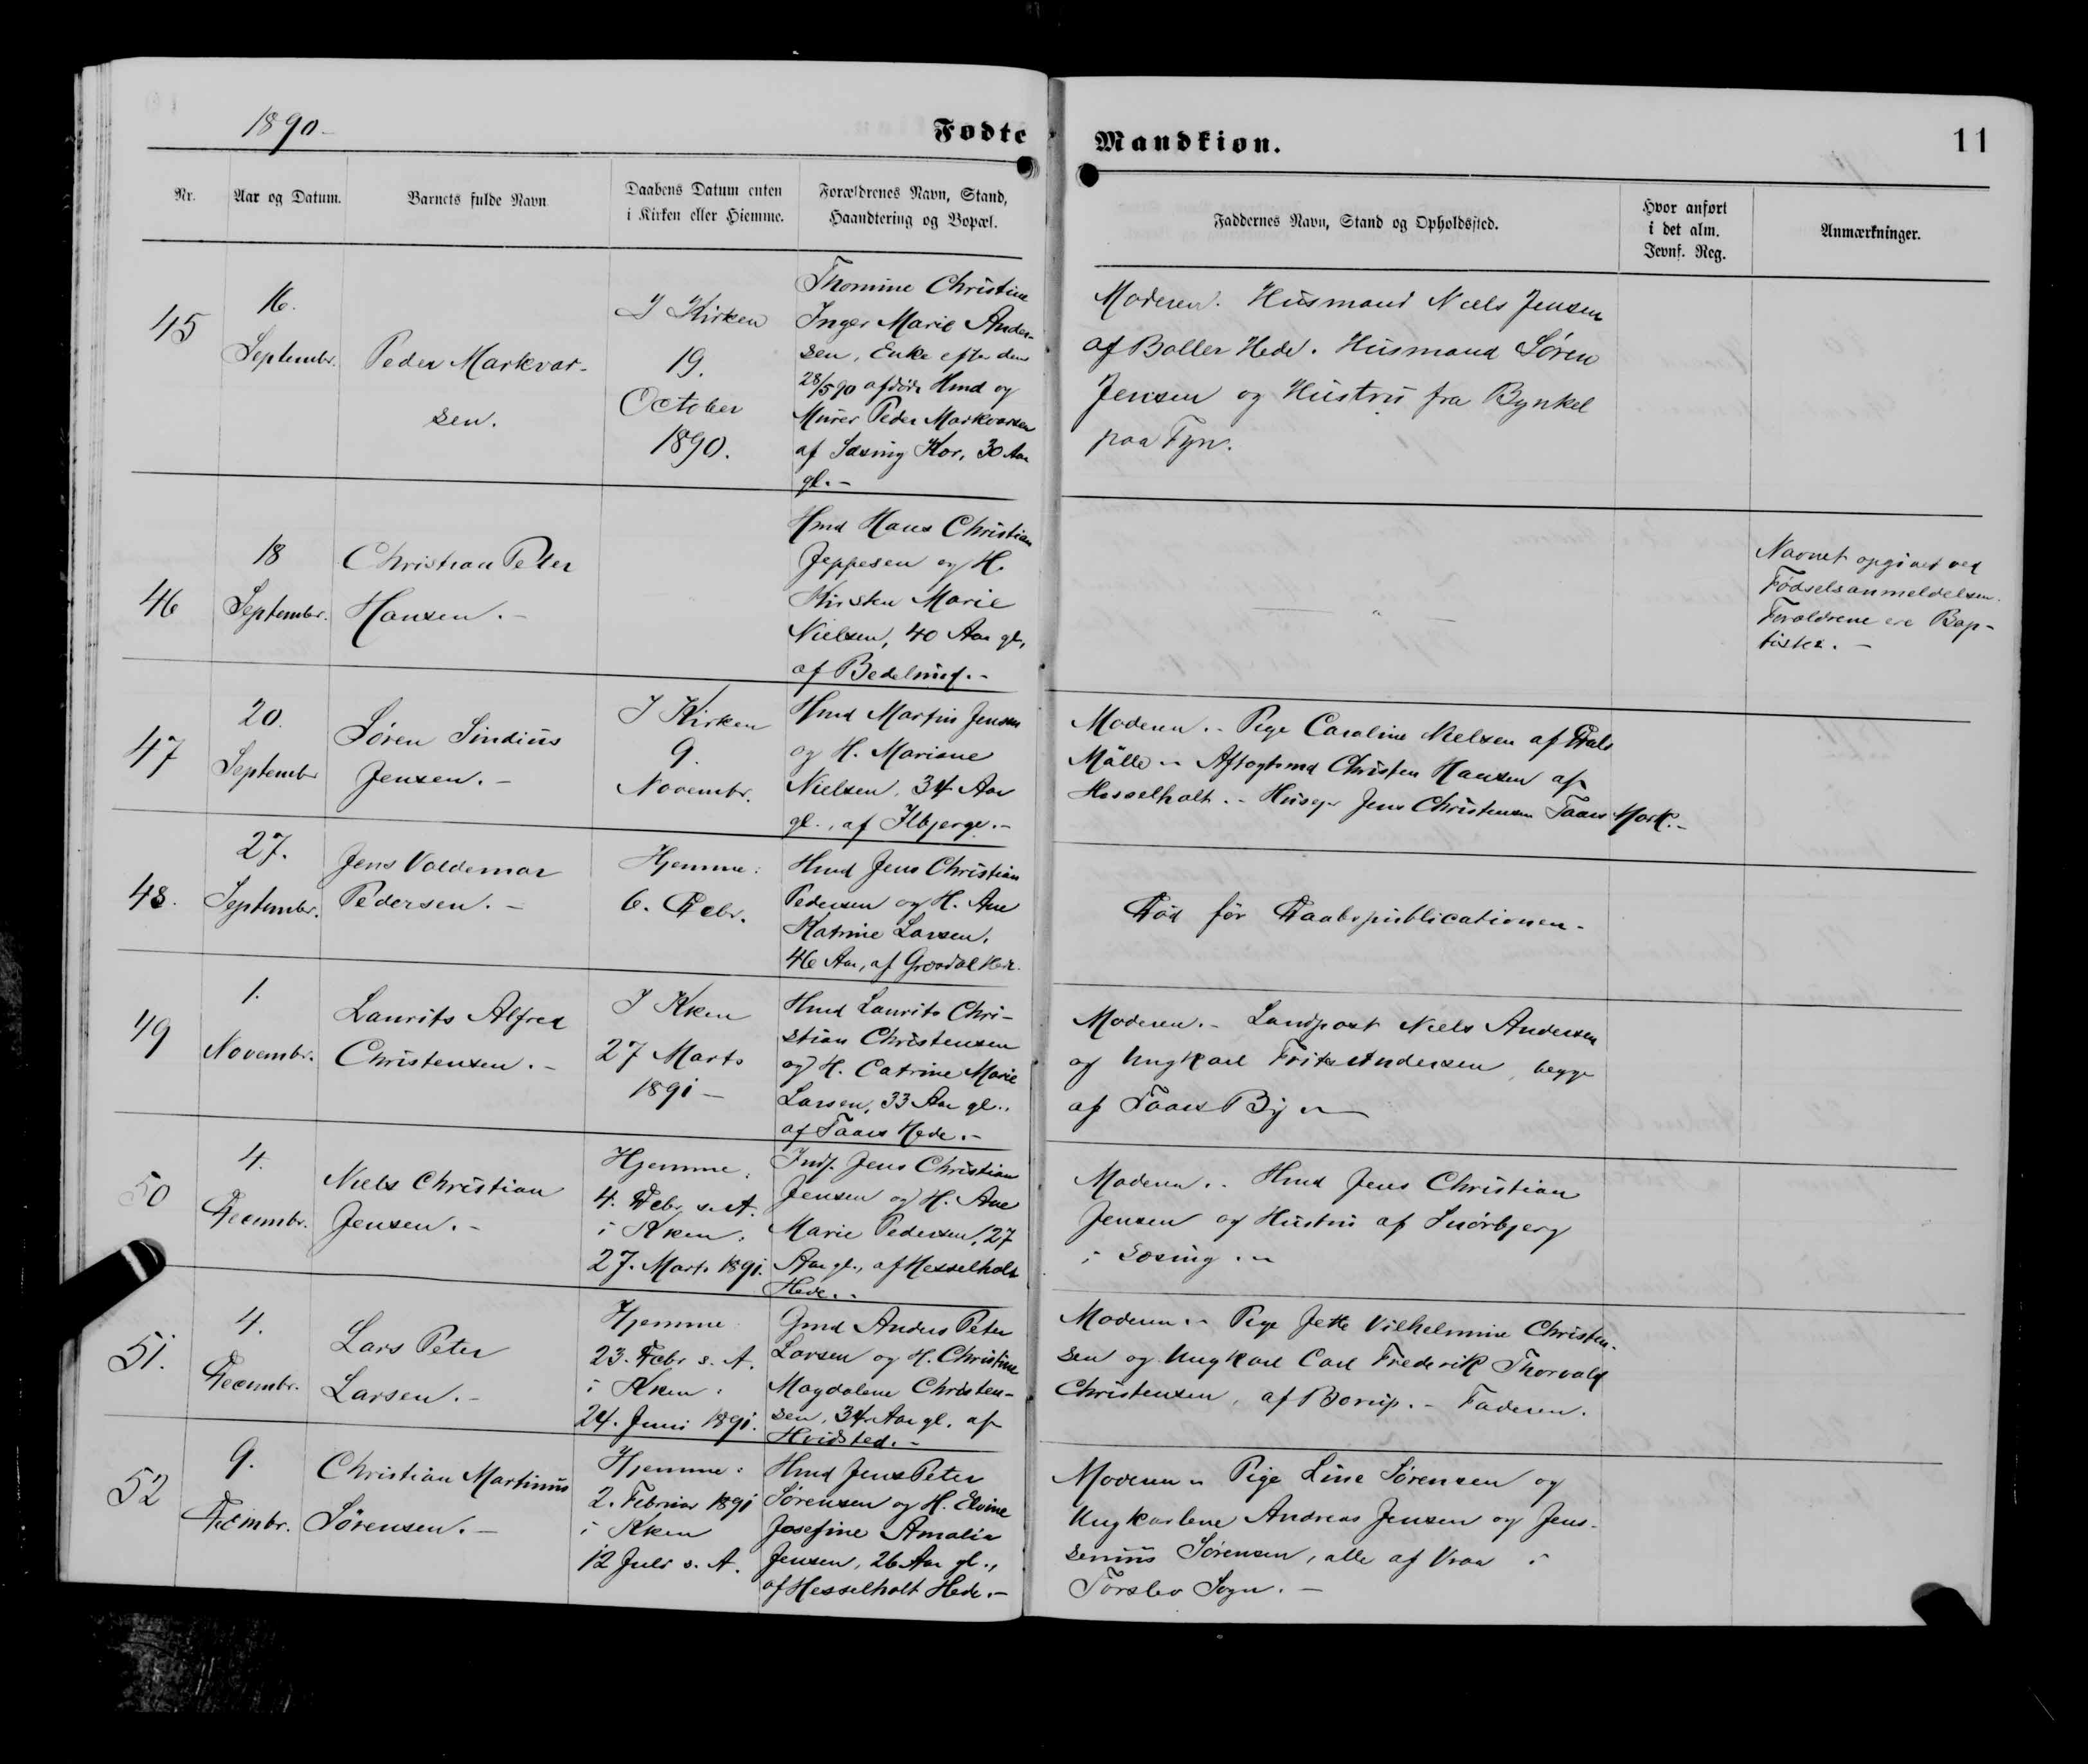 1890.
Fødte
Mandkiøn.
11
Nr.
Aar og Datum.
Barnets fulde Navn
Daabens Datum enten
i Kirken eller Hiemme.
Forældrenes Navn, Stand,
Haandtering og Bopæl.
Faddernes Navn, Stand og Opholdssted.
Hvor anført
i det alm.
Jevnf. Reg.
Anmærkninger.
45
16.
Septembr.
Peder Markvar-
sen.
I Kirken
19.
October
1890.
Thomine Christine
Inger Marie Ander-
sen, Enke efter den
28/5 90 afdøde Hmd og
Murer Peder Markvarsen
af Sæsing Kær, 30 Aar
gl. -
Moderen. Husmand Niels Jensen
af Boller Hede. Husmand Søren
Jensen og Hustru fra Bynkel
paa Fyn.
46
18
Septembr.
Christian Peter
Hansen. -
Hmd Hans Christian
Jeppesen og H.
Kirsten Marie
Nielsen, 40 Aar gl.,
af Bedelund. -
Navnet opgivet ved
Fødselsanmeldelsen.
Forældrene ere Bap-
tister. -
47
20.
Septembr
Søren Sindius
Jensen. -
I Kirken
9.
Novembr.
Hmd Martin Jensen
og H. Mariane
Nielsen, 34 Aar
gl., af Ilbjerge. -
Moderen. - Pige Caroline Nielsen af Dals
Mølle - Aftægtsmd Christen Hansen af
Hesselholt. - Huseger Jens Christensen Taars Mark. -
48.
27.
Septembr.
Jens Valdemar
Pedersen. -
Hjemme:
6. Decbr.
Hmd Jens Christian
Pedersen og H. Ane
Katrine Larsen,
46 Aar, af Grøndal Hede.
Død før Daabspublicationen -
49
1.
Novembr.
Laurits Alfred
Christensen. -
I Kken
27 Marts
1891 -
Hmd Laurits Chri-
stian Christensen
og H. Catrine Marie
Larsen, 33 Aar gl.,
af Taars Hede. -
Moderen. - Landpost Niels Andersen
og Ungkarl Frits Andersen, begge
af Taars By -
50
4.
Decembr.
Niels Christian
Jensen. -
Hjemme:
4. Decbr. s. A.
i Kken:
27. Marts 1891.
Inds. Jens Christian
Jensen og H. Ane
Marie Pedersen, 27
Aar gl., af Hesselholt
Hede. -
Moderen. - Hmd Jens Christian
Jensen og Hustru af Snörbjerg
i Sæsing. -
51.
4.
Decembr.
Lars Peter
Larsen. -
Hjemme
23. Decbr. s. A.
i Kken:
24. Juni 1891.
Gmd Anders Peter
Larsen og H. Christine
Magdalene Christen-
sen, 34 Aar gl. af
Hvidsted. -
Moderen. - Pige Jette Vilhelmine Christen-
sen og Ungkarl Carl Frederik Thorvald
Christensen, af Borup. - Faderen.
52
9.
Decembr.
Christian Martinus
Sörensen. -
Hjemme:
2. Februar 1891
i Kken
12 Juli s. A.
Hmd Jens Peter
Sørensen og H. Elvine
Josefine Amalia
Jensen, 26 Aar gl.,
af Hesselholt Hede. -
Moderen - Pige Line Sørensen og
Ungkarlene Andreas Jensen og Jens-
senius Sörensen, alle af Vraa i
Torslev Sogn. -